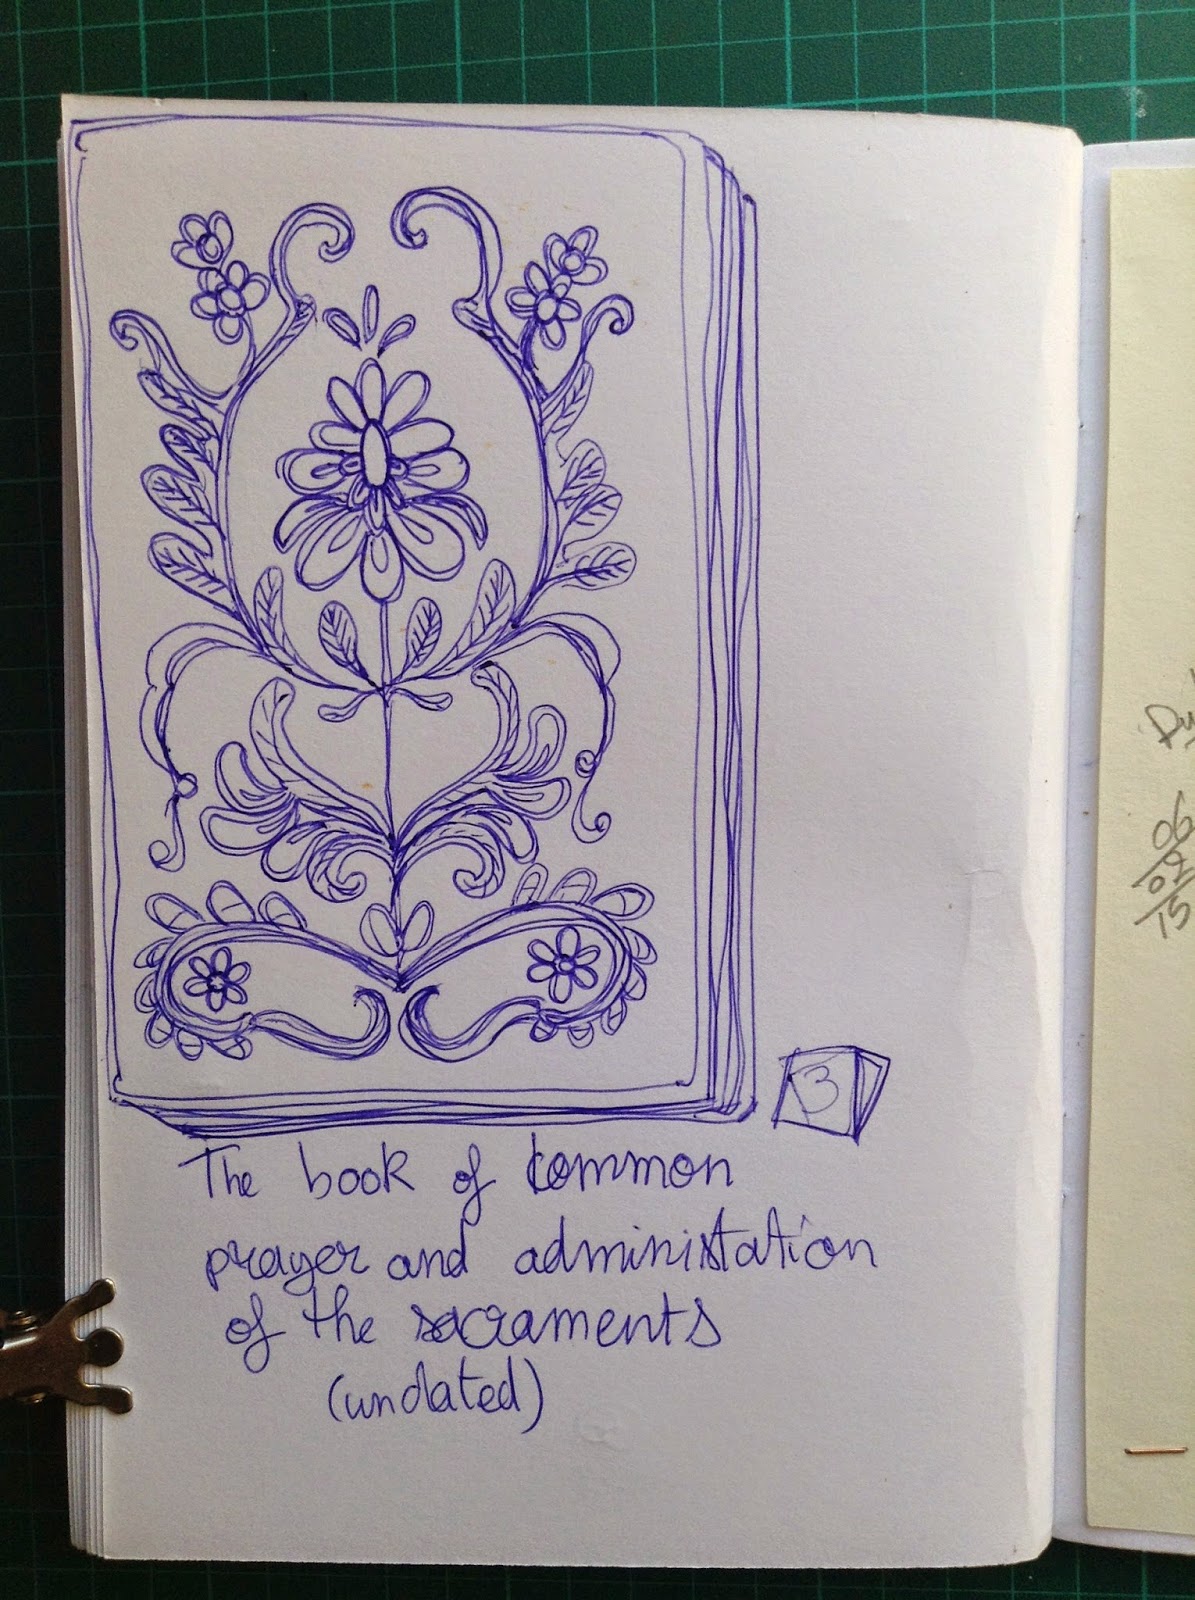 3
The book of common
prayer and administation
of the sacraments
(undated)
06
02
15